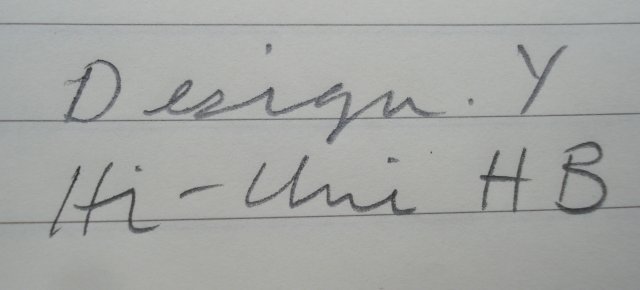 Design. Y
Hi-Uni HB